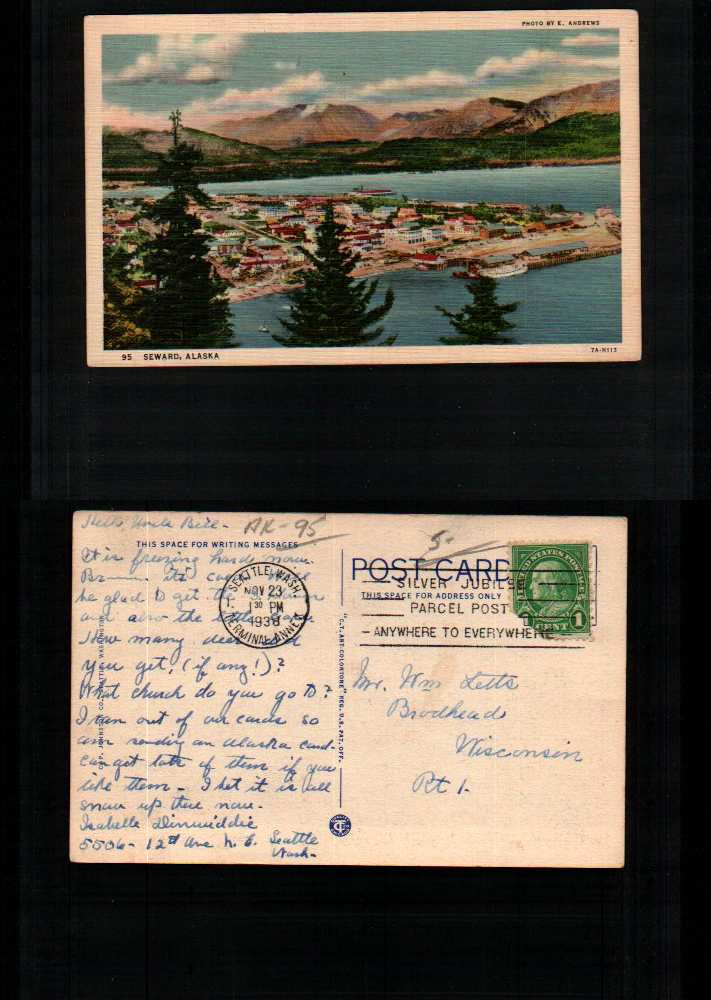 PHOTO BY E. ANDREWS
95 SEWARD, ALASKA
7A-H113
Hello Uncle Bill-
AK-95
5-
THIS SPACE FOR WRITING MESSAGES
POST CARD
THIS SPACE FOR ADDRESS ONLY
It is freezing hard now.
Br---- its
be glad to get the
and also the
How many deer
you get, (if any!)?
What church do you go to?
I ran out of our cards so
am sending an Alaska card-
can get lots of them if you
like them - I bet it is all
snow up there now.
Isabelle Dinwiddie
5506- 12th Ave N. E. Seattle
Wash-
SEATTLE, WASH.
NOV 23
1 30 PM
1938
TERMINAL ANNEX
SILVER JUBILE
PARCEL POST
ANYWHERE TO EVERYWHERE
UNITED STATES POSTAGE
FRANKLIN
1
CENT
Mr. Wm Letts
Brodhead
Wisconsin
Rt 1.
"C.T.ART-COLORTONE" REG. U.S. PAT. OFF.